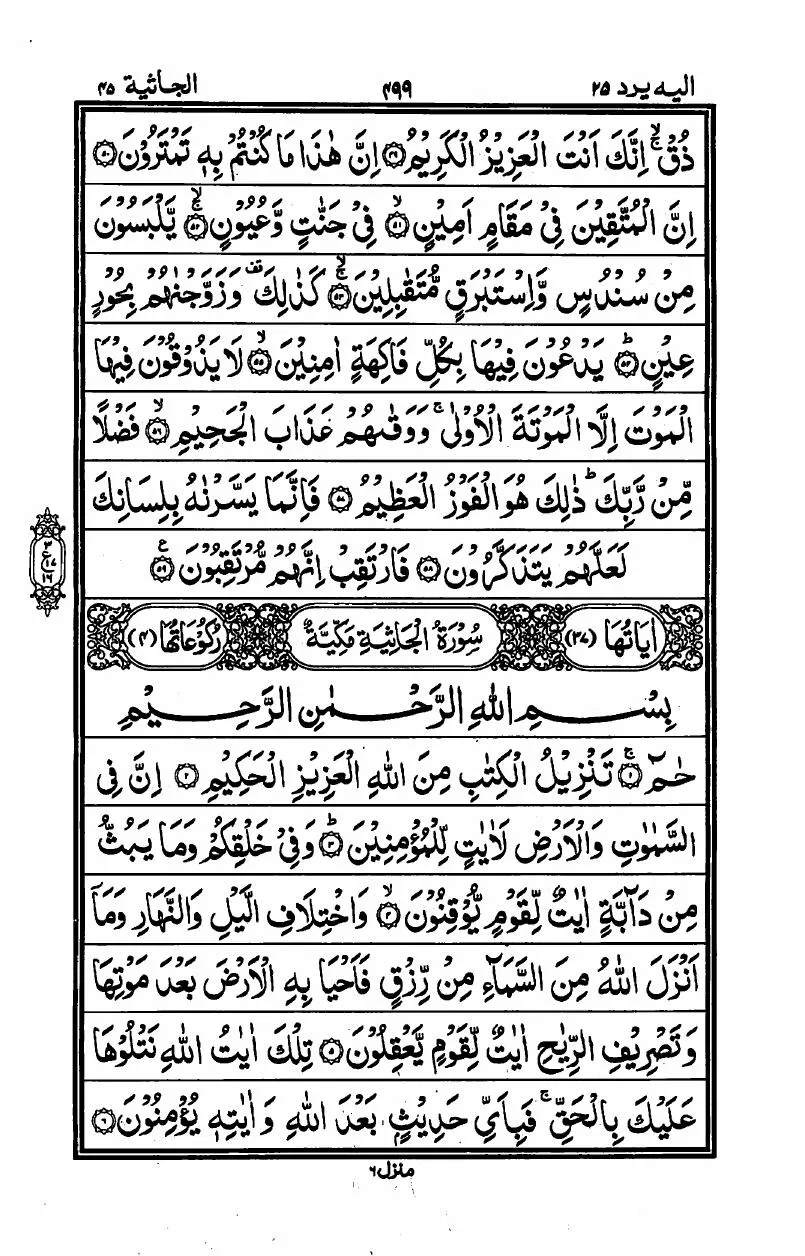 الیه یرد ۲۵ ۴۹۹ الجاثیة ۴۵
ذُقْ ۚۙ اِنَّكَ اَنْتَ الْعَزِيْزُ الْكَرِيْمُ ﴿۴۹﴾ اِنَّ هٰذَا مَا كُنْتُمْ بِهٖ تَمْتَرُوْنَ ﴿۵۰﴾
اِنَّ الْمُتَّقِيْنَ فِيْ مَقَامٍ اَمِيْنٍ ﴿۵۱﴾ۙ فِيْ جَنّٰتٍ وَّعُيُوْنٍ ﴿۵۲﴾ۚۙ يَّلْبَسُوْنَ
مِنْ سُنْدُسٍ وَّاِسْتَبْرَقٍ مُّتَقٰبِلِيْنَ ﴿۵۳﴾ۚۙ كَذٰلِكَ ۫ وَزَوَّجْنٰهُمْ بِحُوْرٍ
عِيْنٍ ﴿۵۴﴾ؕ يَدْعُوْنَ فِيْهَا بِكُلِّ فَاكِهَةٍ اٰمِنِيْنَ ﴿۵۵﴾ۙ لَا يَذُوْقُوْنَ فِيْهَا
الْمَوْتَ اِلَّا الْمَوْتَةَ الْاُوْلٰى ۚ وَوَقٰىهُمْ عَذَابَ الْجَحِيْمِ ﴿۵۶﴾ۙ فَضْلًا
مِّنْ رَّبِّكَ ؕ ذٰلِكَ هُوَ الْفَوْزُ الْعَظِيْمُ ﴿۵۷﴾ فَاِنَّمَا يَسَّرْنٰهُ بِلِسَانِكَ
لَعَلَّهُمْ يَتَذَكَّرُوْنَ ﴿۵۸﴾ فَارْتَقِبْ اِنَّهُمْ مُّرْتَقِبُوْنَ ﴿۵۹﴾ۧ
۳
ع ۱۷
۱۶
اٰيَاتُهَا (۳۷) سُوْرَةُ الْجَاثِيَةِ مَكِّيَّةٌ رُكُوْعَاتُهَا (۴)
بِسْمِ اللّٰهِ الرَّحْمٰنِ الرَّحِيْمِ
حٰمٓ ﴿۱﴾ۚ تَنْزِيْلُ الْكِتٰبِ مِنَ اللّٰهِ الْعَزِيْزِ الْحَكِيْمِ ﴿۲﴾ اِنَّ فِي
السَّمٰوٰتِ وَالْاَرْضِ لَاٰيٰتٍ لِّلْمُؤْمِنِيْنَ ﴿۳﴾ؕ وَفِيْ خَلْقِكُمْ وَمَا يَبُثُّ
مِنْ دَآبَّةٍ اٰيٰتٌ لِّقَوْمٍ يُّوْقِنُوْنَ ﴿۴﴾ۙ وَاخْتِلَافِ الَّيْلِ وَالنَّهَارِ وَمَآ
اَنْزَلَ اللّٰهُ مِنَ السَّمَآءِ مِنْ رِّزْقٍ فَاَحْيَا بِهِ الْاَرْضَ بَعْدَ مَوْتِهَا
وَتَصْرِيْفِ الرِّيٰحِ اٰيٰتٌ لِّقَوْمٍ يَّعْقِلُوْنَ ﴿۵﴾ تِلْكَ اٰيٰتُ اللّٰهِ نَتْلُوْهَا
عَلَيْكَ بِالْحَقِّ ۚ فَبِاَيِّ حَدِيْثٍۭ بَعْدَ اللّٰهِ وَاٰيٰتِهٖ يُؤْمِنُوْنَ ﴿۶﴾
منزل ۶